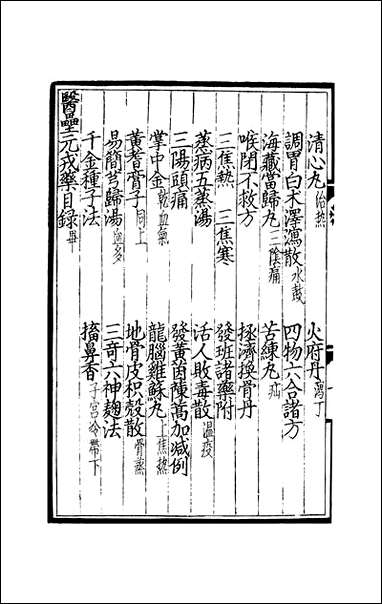 清心丸 治熱 火府丹 篤丁
調胃白朮澤瀉散 水鼓 四物六合諸方
海藏當歸丸 三陰痛 苦練丸 疝
喉閉不救方 拯濟換骨丹
三焦熱 三焦寒 發班諸藥附
蒸病五蒸湯 活人敗毒散 溫疫
三陽頭痛 發黃茵陳蒿加減例
掌中金 乾血氣 龍腦雞蘇丸 上焦熱
黃耆膏子 同上 地骨皮枳殼散 骨蒸
易簡芎歸湯 三奇六神麴法
千金種子法 搐鼻香 子宮冷帶下
醫壘元戎藥目錄畢